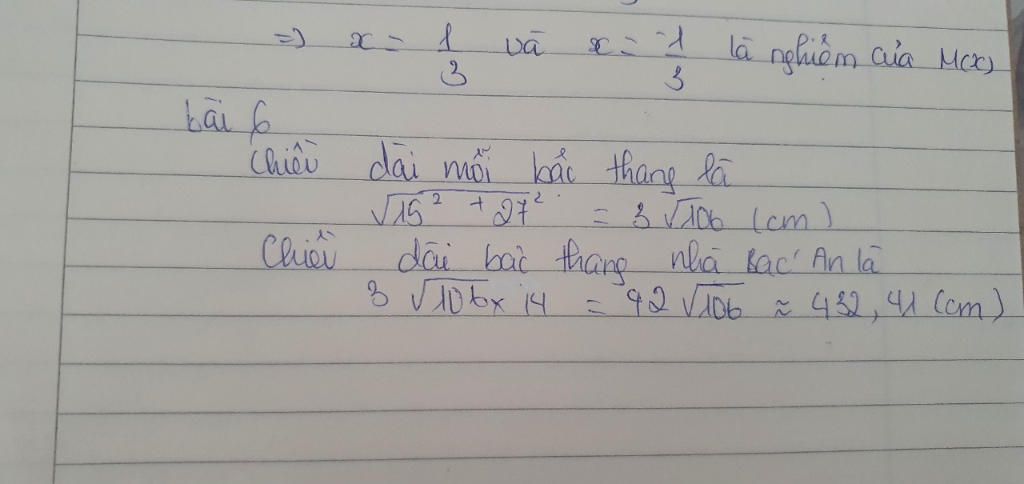 => x = 1/3 và x = -1/3 là nghiệm của M(x)
bài 6
Chiều dài mỗi bậc thang là
√15² + 27² = 3√106 (cm)
Chiều dài bậc thang nhà Bác An là
3√106 x 14 = 42√106 ≈ 432,41 (cm)